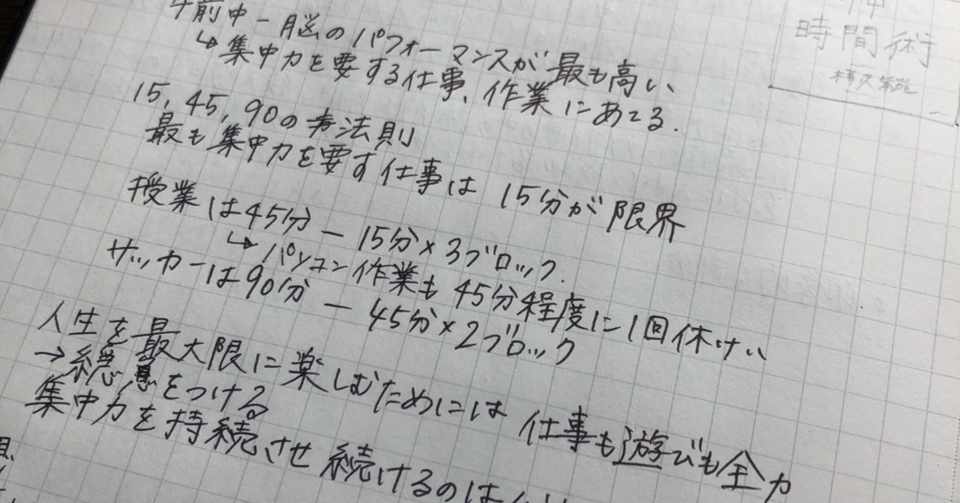 午前中ー脳のパフォーマンスが最も高い
↳集中力を要する仕事、作業にあてる.
15, 45, 90の法則
最も集中力を要す仕事は 15分が限界
授業は45分 ー 15分×3ブロック.
↳パソコン作業も45分程度に1回休けい
サッカーは90分 ー 45分×2ブロック
人生を最大限に楽しむためには 仕事も遊びも全力
→緩急をつける
集中力を持続させ続けるのは
時間術